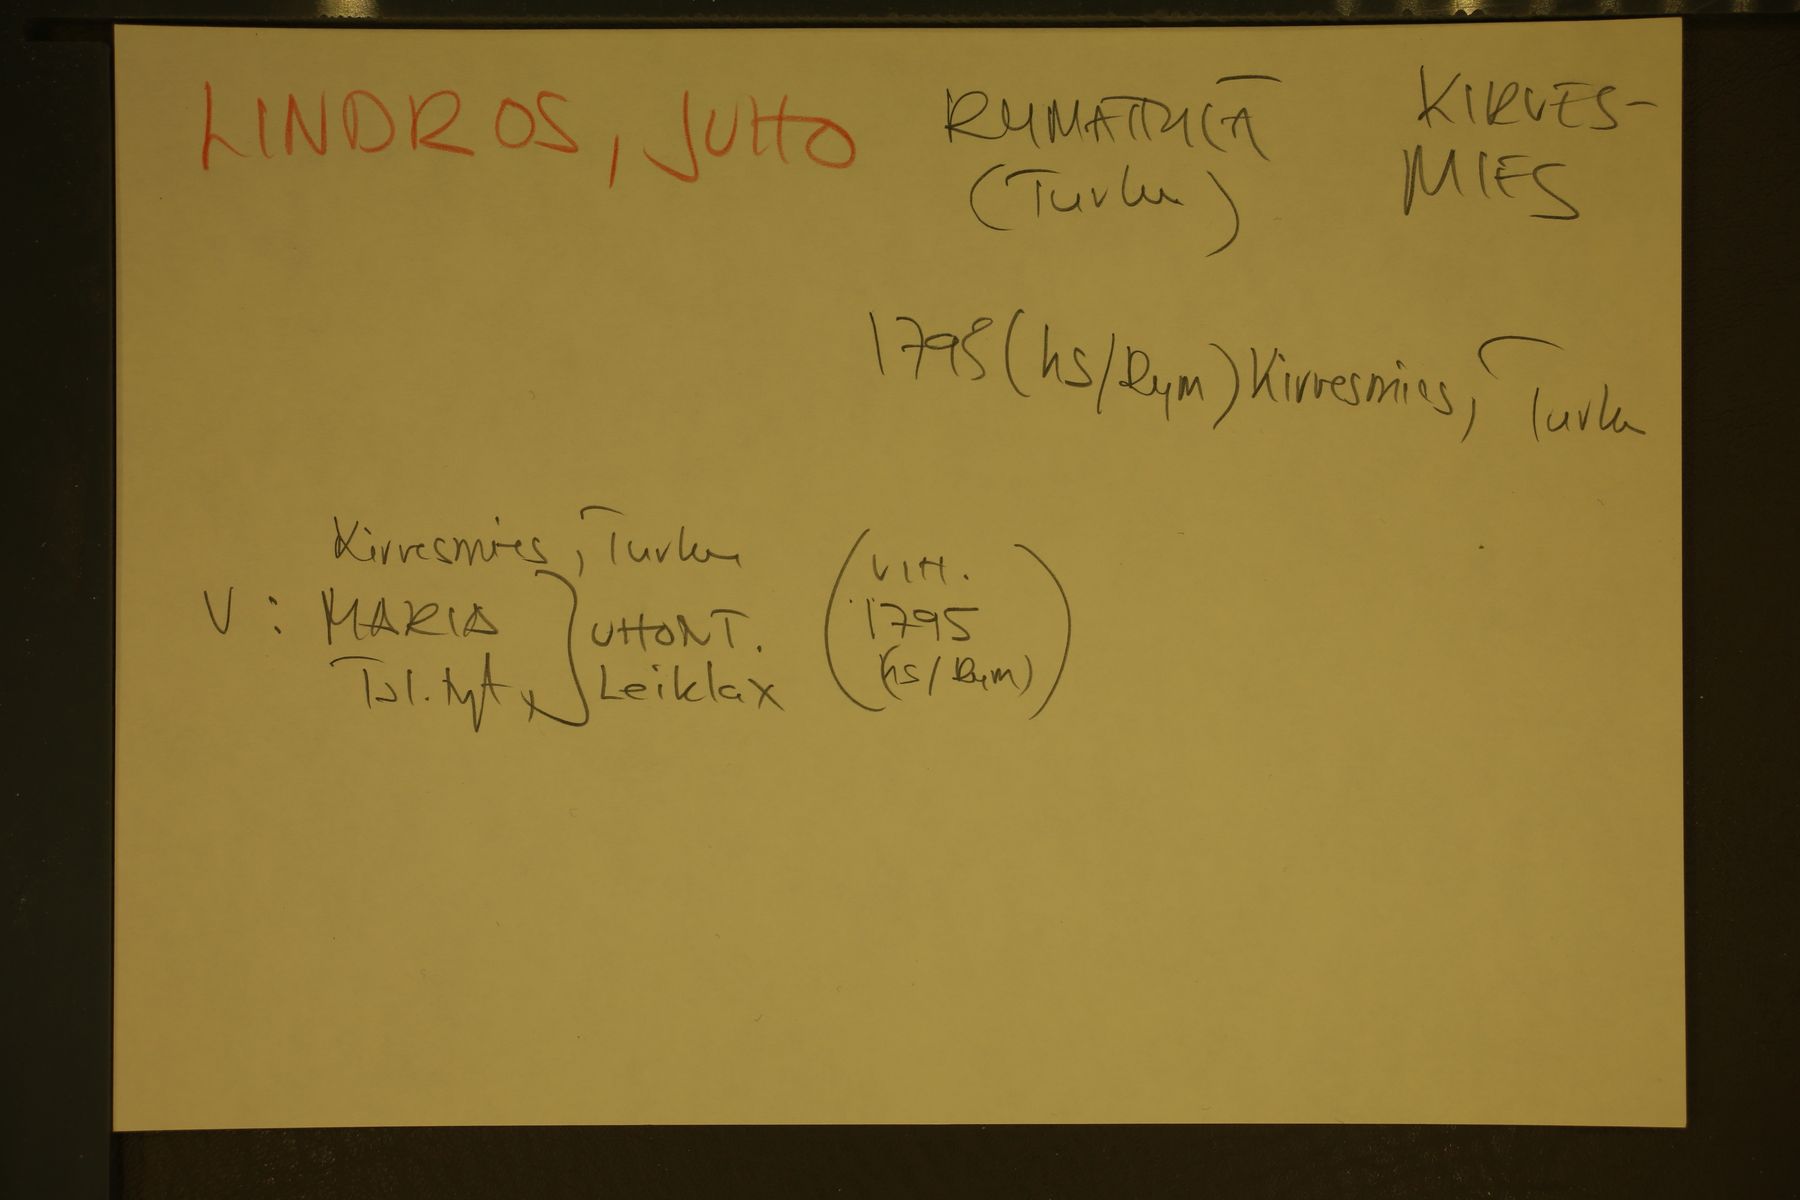 LINDROS, JUHO RYMÄTTYLÄ KIRVES-
(Turku) MIES
1795 (hs/Rym) Kirvesmies, Turku
Kirvesmies, Turku
V: MARIA } UHONT. (VIH. 1795 hs/Rym)
Tal. tyt } Leiklax